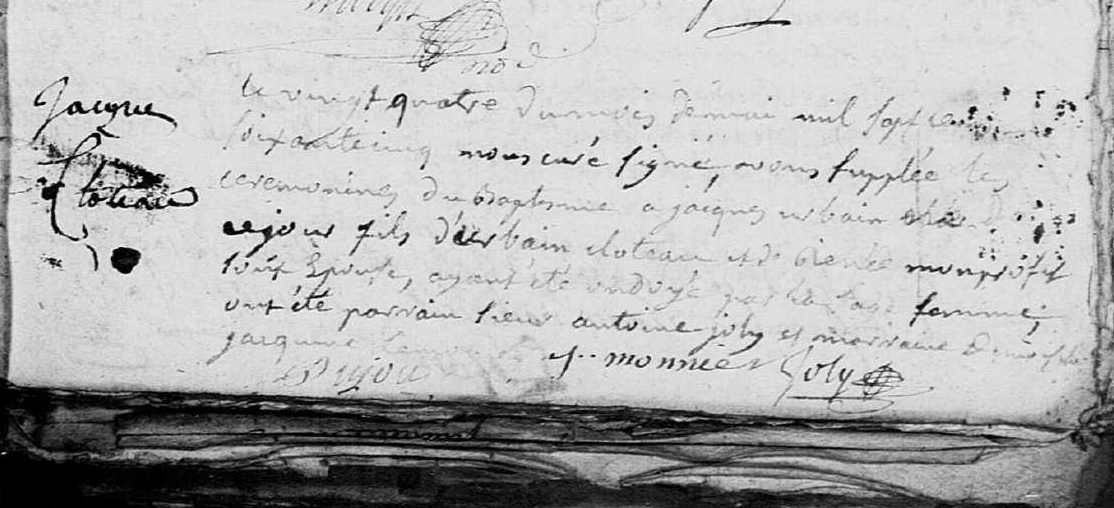 Jacques
Cloteau
le vingt quatre du mois de mai mil sept cen
soixante cinq nous curé signé, avons supplée les
ceremonines du Baptesme a jacques urbain
ce jour fils d'urbain cloteau et de Renée monprofit
son Epouse, ayant été ondoyé par la sage femme;
ont été parrain sieur antoine joly et marraine
jacquine
Bijou f. monnier Joly